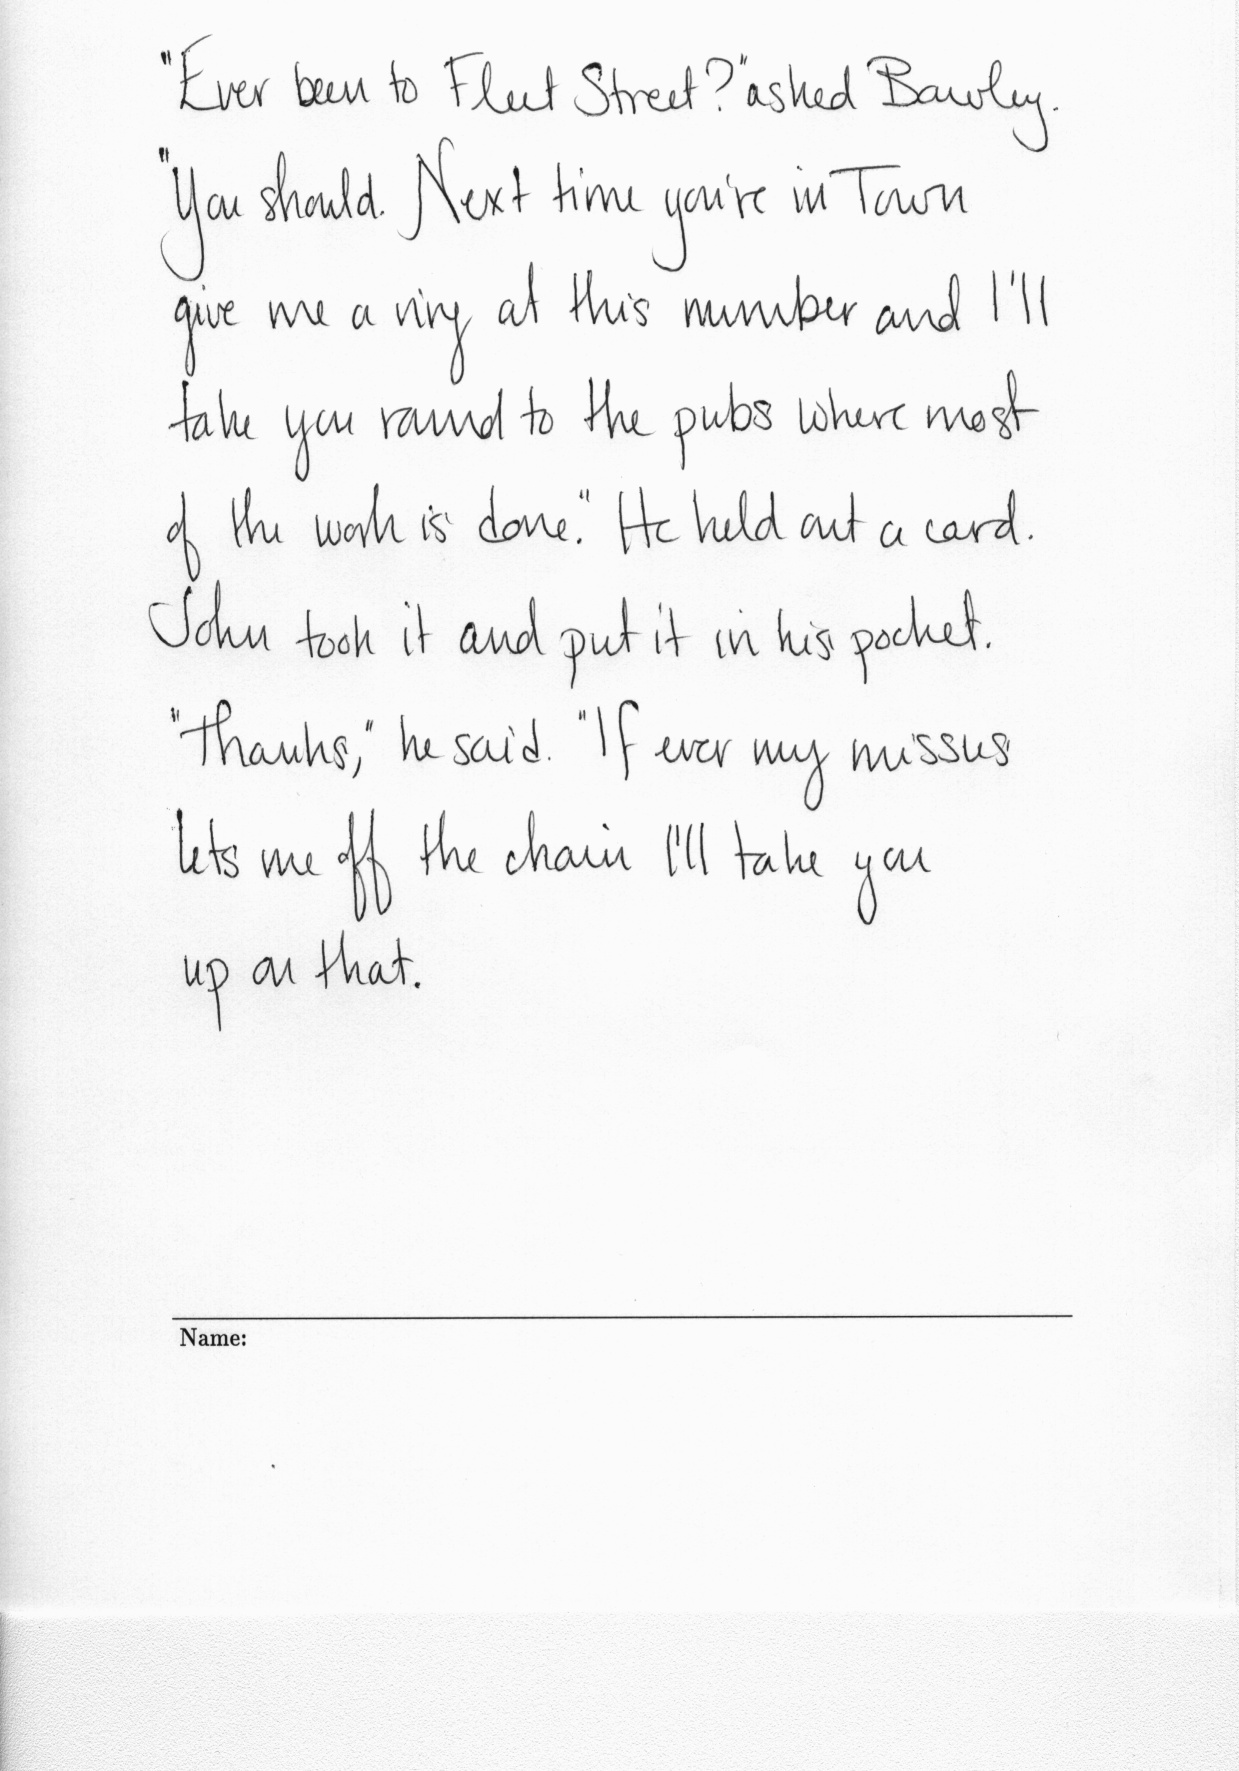 "Ever been to Fleet Street?" asked Bawley.
"You should. Next time you're in Town
give me a ring at this number and I'll
take you round to the pubs where most
of the work is done." He held out a card.
John took it and put it in his pocket.
"Thanks," he said. "If ever my missus
lets me off the chain I'll take you
up on that.
Name: